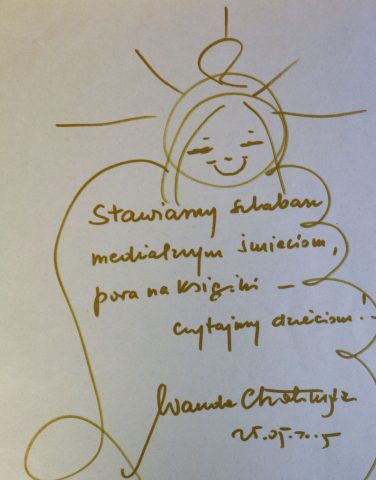 Stawiamy szlaban
medialnym śmieciom,
pora na książki –
czytajmy dzieciom!
Wanda Chotomska